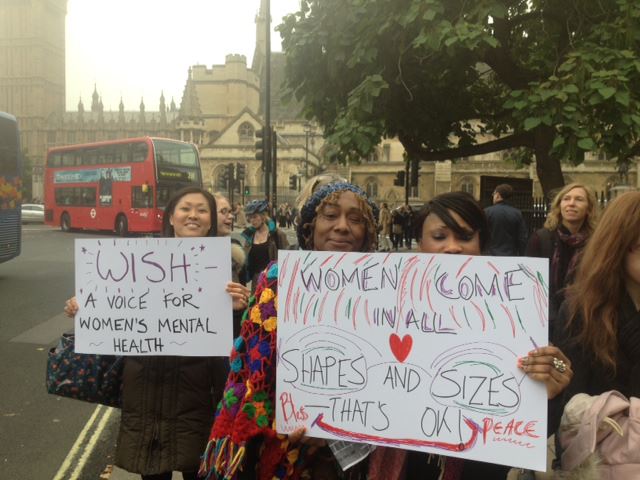 WISH -
A VOICE FOR
WOMEN'S MENTAL
HEALTH
WOMEN COME
IN ALL
SHAPES AND SIZES
Bless - THAT'S OK!
PEACE